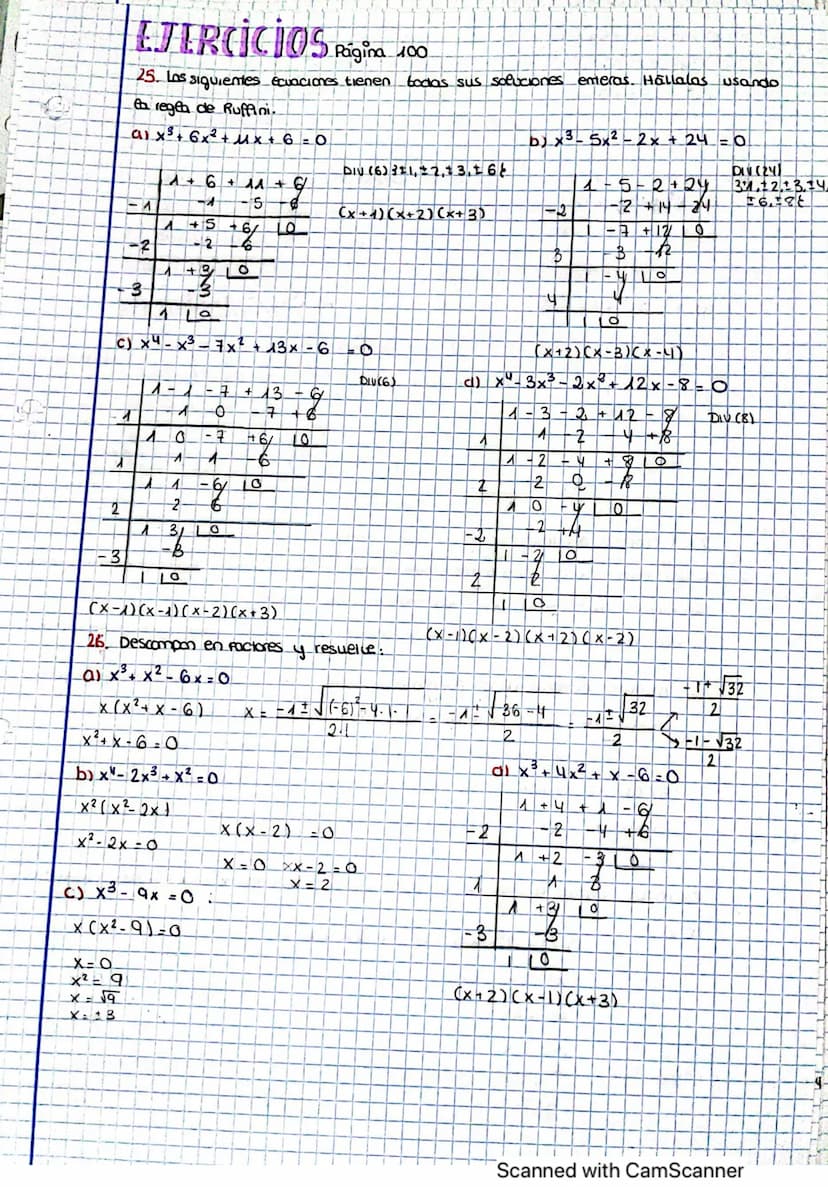 EJERCICIOS Página 100
25. Las siguientes ecuaciones tienen todas sus soluciones enteras. Hállalas usando
la regla de Ruffini.
a) x³ + 6x² + 11x + 6 = 0
Div (6) {±1, ±2, ±3, ±6}
1 + 6 + 11 + 6
-1 -1 -5 -6
1 +5 +6 0
-2 -2 -6
1 +3 0
-3 -3
1 0
(x+1)(x+2)(x+3)
b) x³ - 5x² - 2x + 24 = 0
Div (24)
{±1, ±2, ±3, ±4,
±6, ±8}
1 - 5 - 2 + 24
-2 -2 +14 -24
1 -7 +12 0
3 3 -12
1 -4 0
4 4
1 0
(x+2)(x-3)(x-4)
c) x⁴ - x³ - 7x² + 13x - 6 = 0
Div(6)
1 - 1 - 7 + 13 - 6
1 1 0 -7 +6
1 0 -7 +6 0
1 1 1 -6
1 1 -6 0
2 2 6
1 3 0
-3 -3
1 0
(x-1)(x-1)(x-2)(x+3)
d) x⁴ - 3x³ - 2x² + 12x - 8 = 0
Div (8)
1 - 3 - 2 + 12 - 8
1 1 -2 -4 +8
1 -2 -4 +8 0
2 2 0 -8
1 0 -4 0
-2 -2 +4
1 -2 0
2 2
1 0
(x-1)(x-2)(x+2)(x-2)
26. Descompon en factores y resuelve:
a) x³ + x² - 6x = 0
x (x² + x - 6)
x² + x - 6 = 0
x = -1 ± √(-6)² - 4·1·1 / 2·1 = -1 ± √36 - 4 / 2 = -1 ± √32 / 2
-1 + √32 / 2
-1 - √32 / 2
b) x⁴ - 2x³ + x² = 0
x² (x² - 2x)
x² - 2x = 0
x (x - 2) = 0
x = 0 x - 2 = 0
x = 2
c) x³ - 9x = 0 :
x (x² - 9) = 0
x = 0
x² = 9
x = √9
x = ±3
d) x³ + 4x² + x - 6 = 0
1 + 4 + 1 - 6
-2 -2 -4 +6
1 +2 -3 0
1 1 3
1 +3 0
-3 -3
1 0
(x+2)(x-1)(x+3)
Scanned with CamScanner